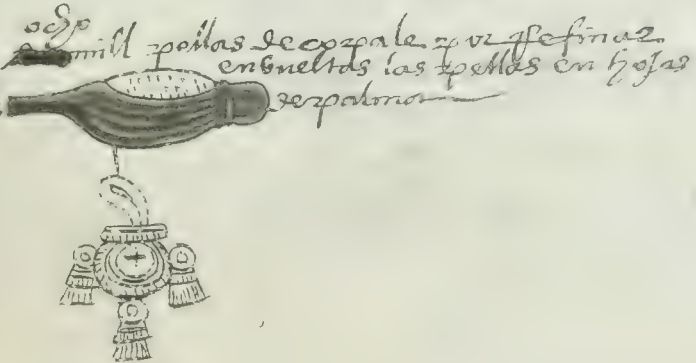 ocho
mill pellas de copale por Refinar
enbueltas las pellas en hojas
de palma